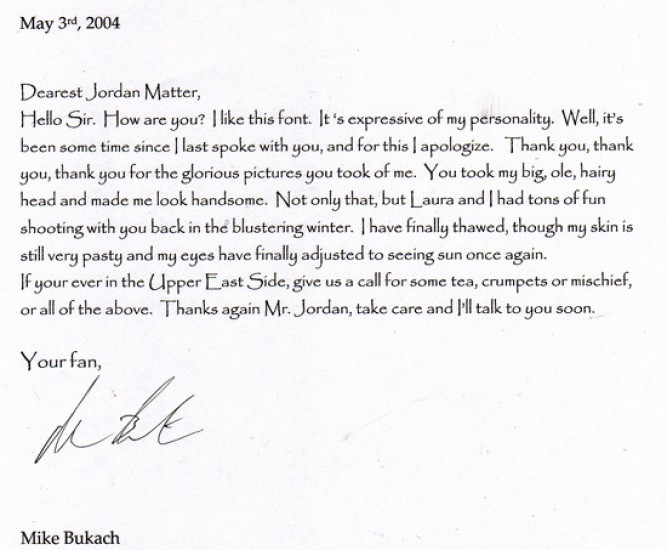 May 3rd, 2004
Dearest Jordan Matter,
Hello Sir. How are you? I like this font. It's expressive of my personality. Well, it's
been some time since I last spoke with you, and for this I apologize. Thank you, thank
you, thank you for the glorious pictures you took of me. You took my big, ole, hairy
head and made me look handsome. Not only that, but Laura and I had tons of fun
shooting with you back in the blustering winter. I have finally thawed, though my skin is
still very pasty and my eyes have finally adjusted to seeing sun once again.
If your ever in the Upper East Side, give us a call for some tea, crumpets or mischief,
or all of the above. Thanks again Mr. Jordan, take care and I'll talk to you soon.
Your fan,
Mike Bukach